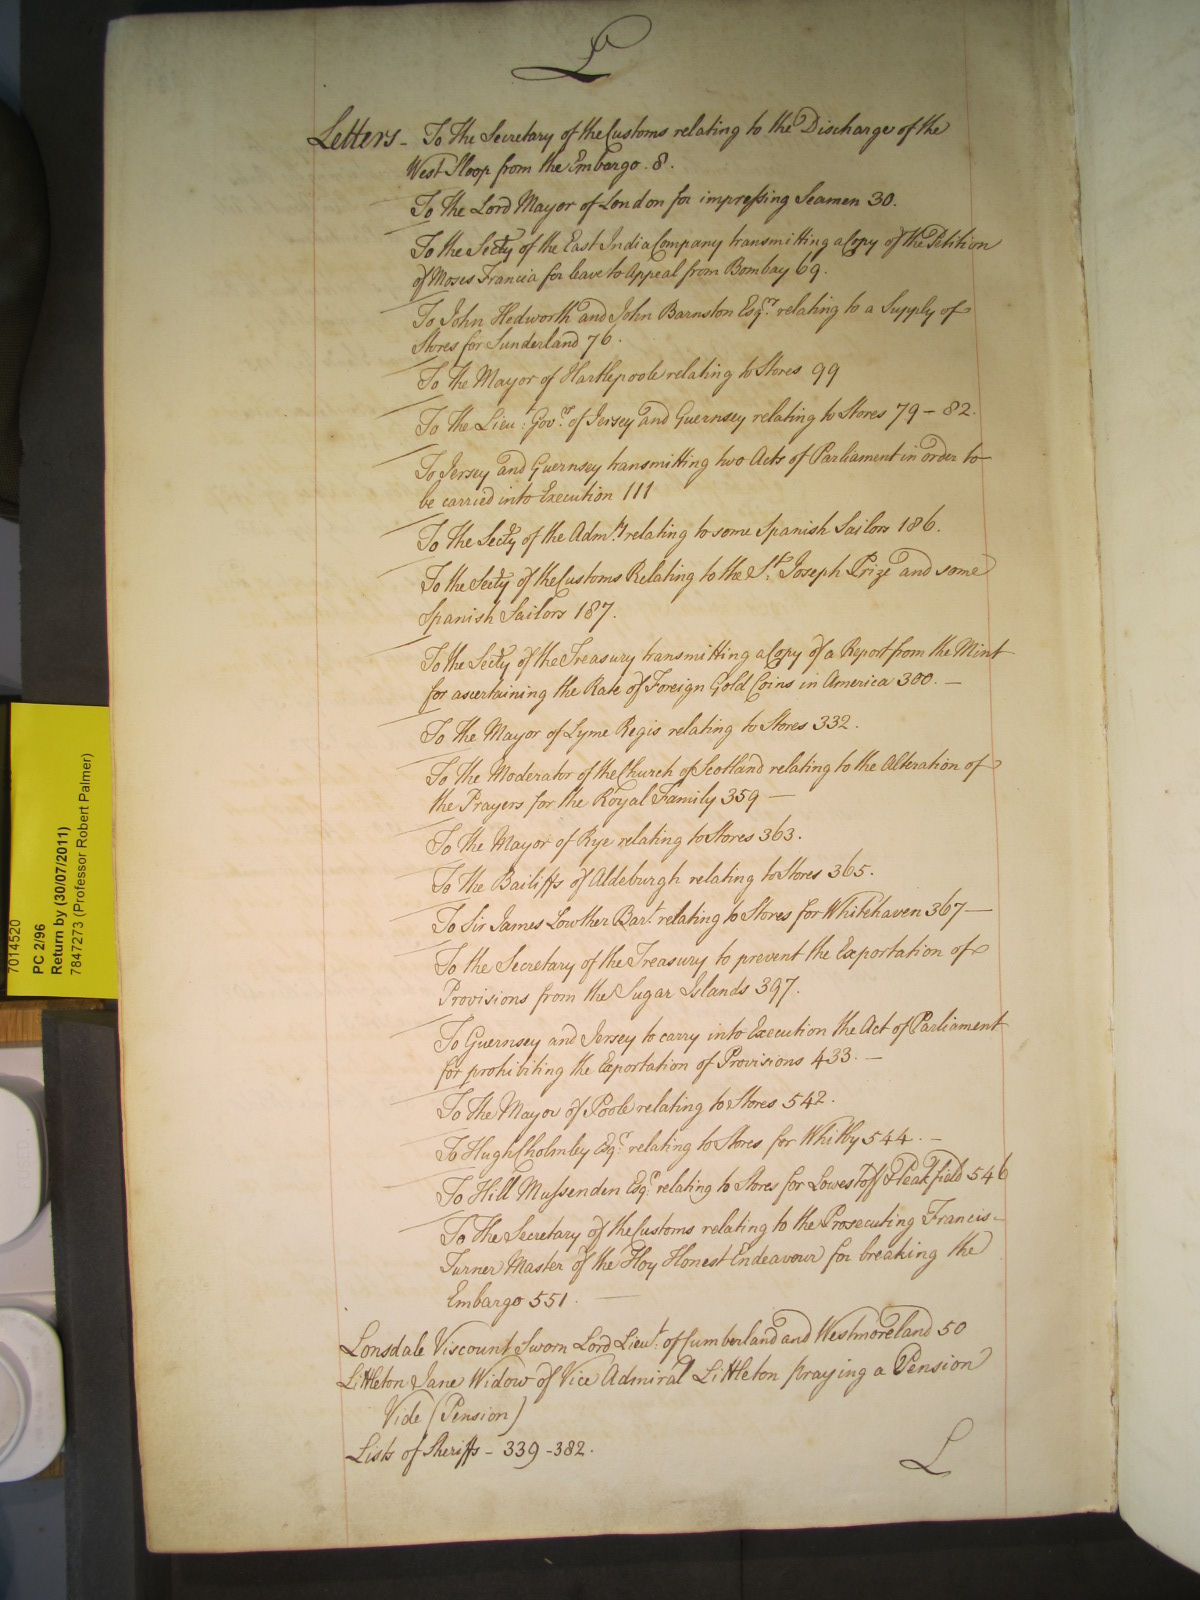 L
Letters - To the Secretary of the Customs relating to the Discharge of the
West Sloop from the Embargo . 8 .
To the Lord Mayor of London for impressing Seamen 30.
To the Secty of the East India Company transmitting a Copy of the Petition
of Moses Francia for leave to Appeal from Bombay 69.
To John Hedworth and John Barnston Esqrs. relating to a Supply of
Stores for Sunderland 76.
To the Mayor of Hartlepoole relating to Stores 99
To the Lieut: Govrs. of Jersey and Guernsey relating to Stores 79 - 82.
To Jersey and Guernsey transmitting two Acts of Parliament in order to
be carried into Execution 111
To the Secty of the Admty relating to some Spanish Sailors 186.
To the Secty of the Customs Relating to the St. Joseph Prize and some
Spanish Sailors 187.
To the Secty of the Treasury transmitting a Copy of a Report from the Mint
for ascertaining the Rate of Foreign Gold Coins in America 300. -
To the Mayor of Lyme Regis relating to Stores 332.
To the Moderator of the Church of Scotland relating to the Alteration of
the Prayers for the Royal Family 359 -
To the Mayor of Rye relating to Stores 363.
To the Bailiffs of Aldeburgh relating to Stores 365.
To Sir James Lowther Bart. relating to Stores for Whitehaven 367 -
To the Secretary of the Treasury to prevent the Exportation of
Provisions from the Sugar Islands 397.
To Guernsey and Jersey to carry into Execution the Act of Parliament
for prohibiting the Exportation of Provisions 433. -
To the Mayor of Poole relating to Stores 542.
To Hugh Cholmley Esqr. relating to Stores for Whitby 544. -
To Hill Mussenden Esqr. relating to Stores for Lowestoff 546
To the Secretary of the Customs relating to the Prosecuting Francis
Turner Master of the Hoy Honest Endeavour for breaking the
Embargo 551.
Lonsdale Viscount Sworn Lord Lieut. of Cumberland and Westmoreland 50
Littleton Jane Widow of Vice Admiral Littleton praying a Pension
Vide (Pension)
Lists of Sheriffs - 339 - 382.
L
7014520
PC 2/96
Return by (30/07/2011)
7847273 (Professor Robert Palmer)